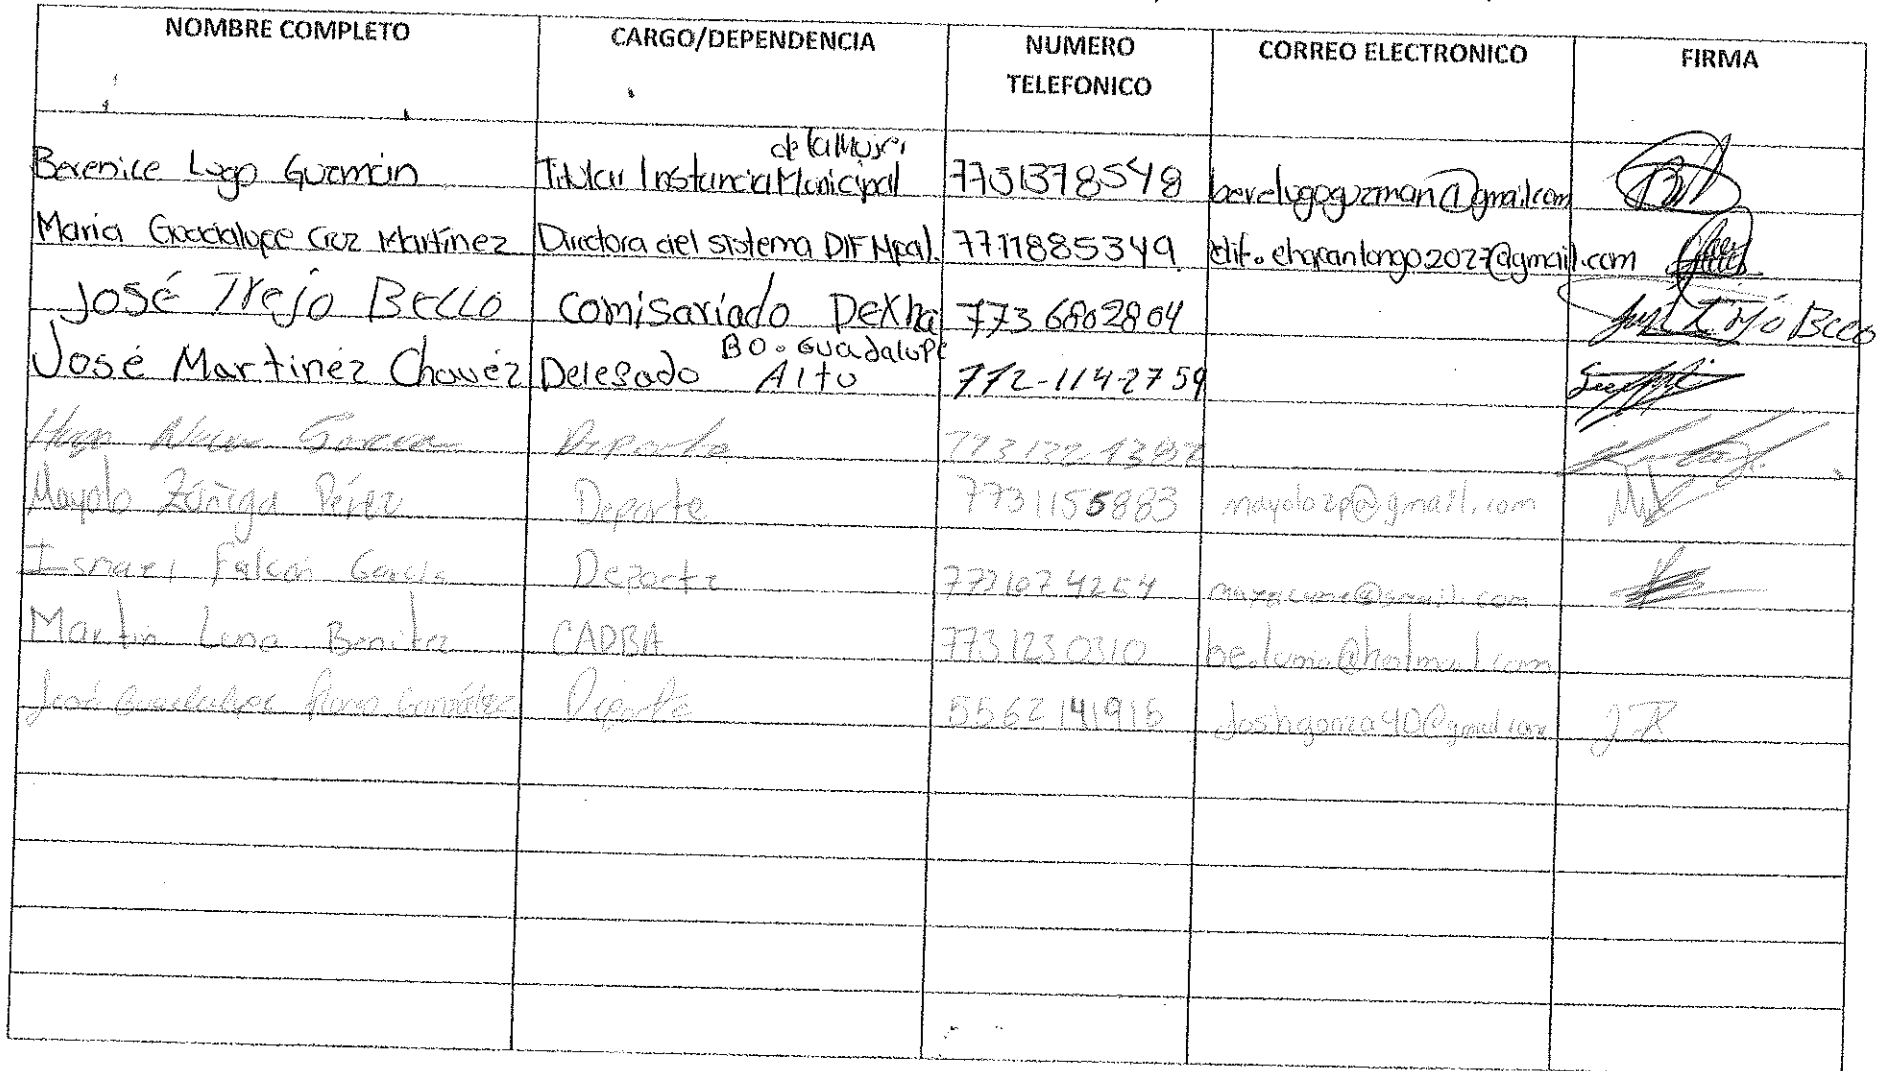 NOMBRE COMPLETO CARGO/DEPENDENCIA NUMERO TELEFONICO CORREO ELECTRONICO FIRMA
Berenice Lugo Guzmán Titular Instancia Municipal de la Mujer 7731378548 berelugoguzman@gmail.com
Maria Guadalupe Cruz Martínez Directora del sistema DIF Mpal. 7711885349 dif.chapantongo2027@gmail.com
José Trejo Bello Comisariado Dexha 773 6802804 José Trejo Bello
José Martinéz Chavéz Delegado Bo. Guadalupe Alto 772-114-2759
Hugo García Deporte
Mayolo Zúñiga Pérez Deporte 7731155883 mayolozp@gmail.com
Ismael Falcón García Deporte
Martin Luna Benitez 7731230310
José Guadalupe González Deporte 5562141916 joshgonza40@gmail.com JR